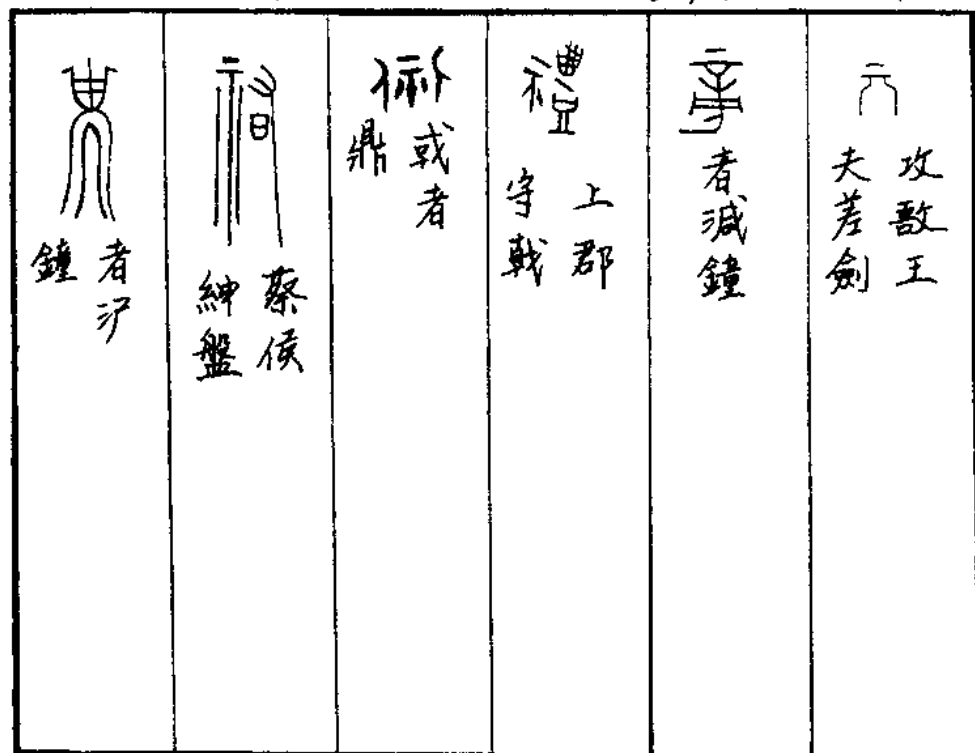 元
攻敔王
夫差劍
者減鐘
禮
上郡
守戟
或者
鼎
祠
蔡侯
紳盤
者沪
鐘